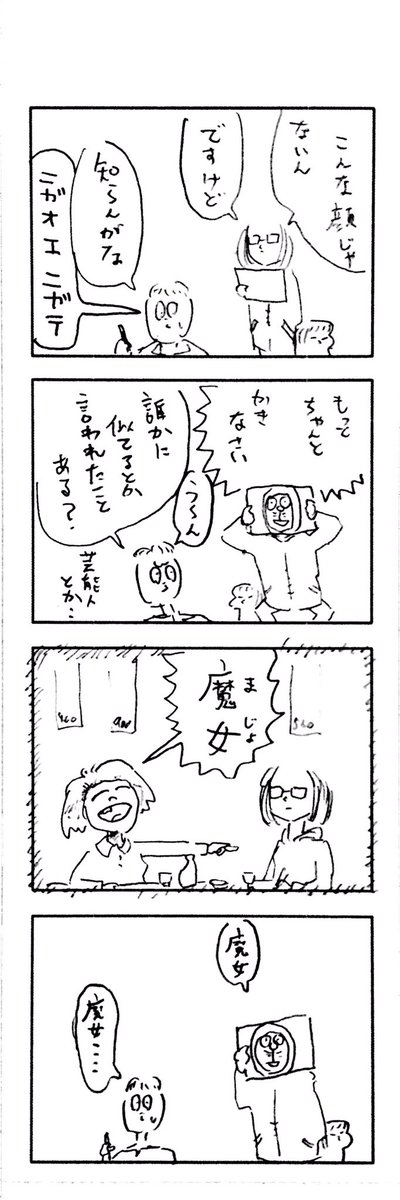 こんな顔じゃ
ないん
ですけど
知らんがな
ニガオエ ニガテ
もって
ちゃんと
かき
なさい
うーん
誰かに
似てるとか
言われたこと
ある?
芸能人
とか…
まじょ
魔女
560
魔女
魔女……